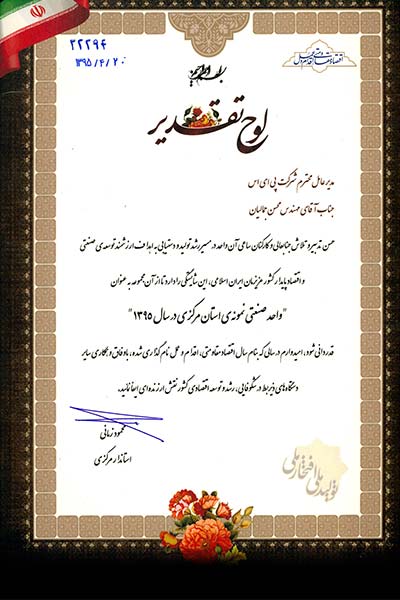 ۳۲۲۹۴
۱۳۹۵/۴/۲۰
اقتصاد مقاومتی اقدام و عمل
لوح تقدیر
مدیرعامل محترم شرکت پی ای اس
جناب آقای مهندس محسن جمالیان
حسن تدبیر و تلاش جنابعالی و کارکنان ساعی آن واحد در مسیر رشد تولید و دستیابی به اهداف ارزشمند توسعه‌ی صنعتی
و اقتصاد پایدار کشور عزیزمان ایران اسلامی، این شایستگی را دارد تا از آن مجموعه به عنوان
"واحد صنعتی نمونه‌ی استان مرکزی در سال ۱۳۹۵"
قدردانی شود، امیدوارم در سالی که بنام سال اقتصاد مقاومتی، اقدام و عمل نام گذاری شده، با وفاق و همکاری سایر
دستگاه‌های ذیربط در شکوفایی، رشد و توسعه اقتصادی کشور نقش ارزنده‌ای ایفا نمائید.
محمود زمانی
استاندار مرکزی
تولید ملی افتخار ملی